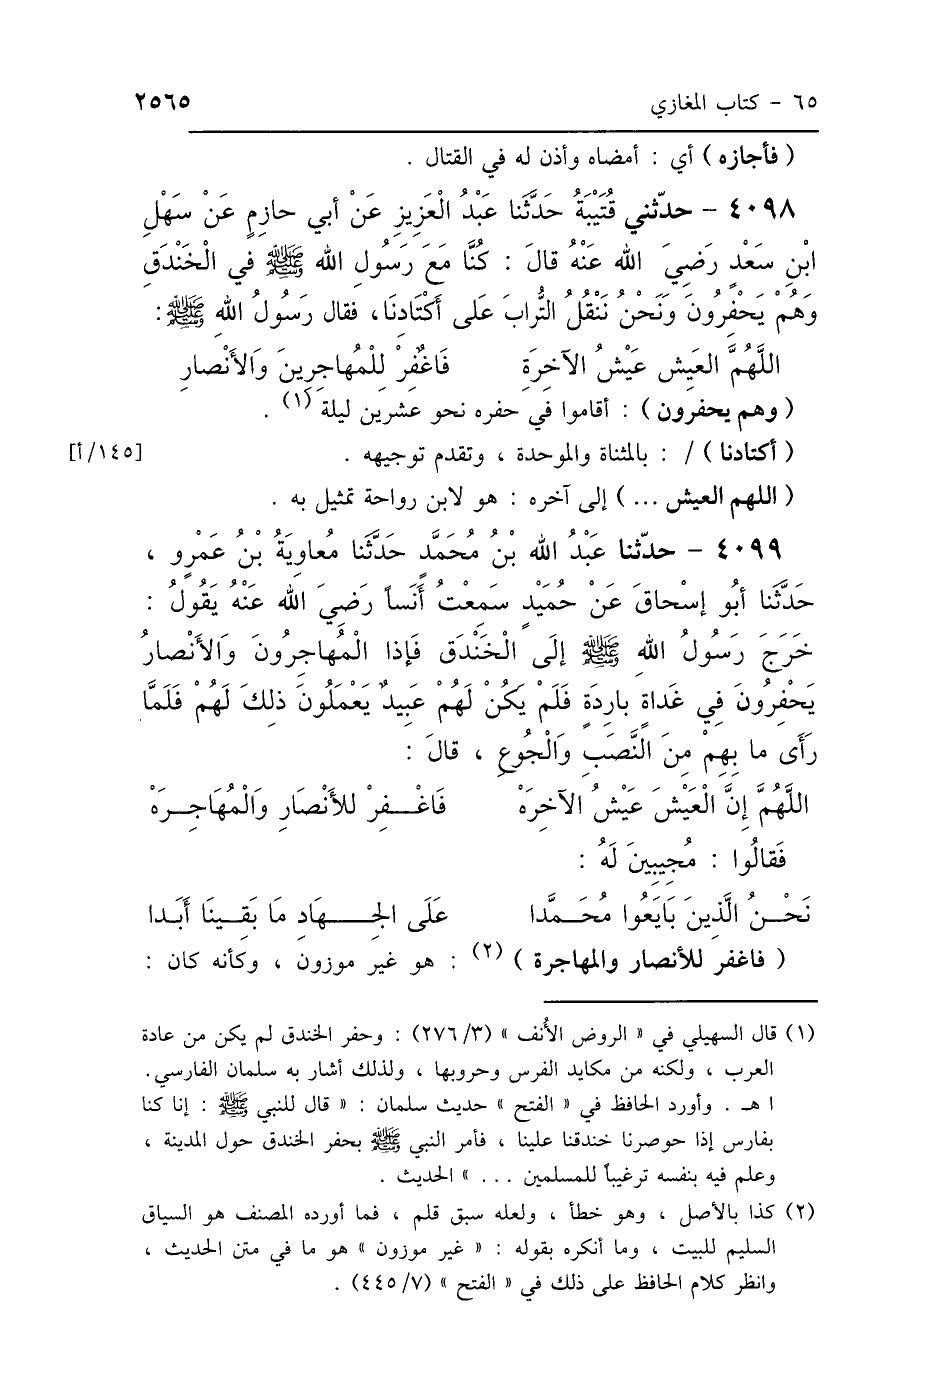 ٦٥ - كتاب المغازي ٢٥٦٥
( فأجازه ) أي : أمضاه وأذن له في القتال .
٤٠٩٨ - حدّثني قُتَيْبَةُ حَدَّثَنا عَبْدُ الْعَزِيزِ عَنْ أبي حازِمٍ عَنْ سَهْلِ
ابْنِ سَعْدٍ رَضِيَ الله عَنْهُ قالَ : كُنَّا مَعَ رَسُولِ الله ﷺ في الْخَنْدَقِ
وَهُمْ يَحْفِرُونَ وَنَحْنُ نَنْقُلُ التُّرابَ عَلى أَكْتَادِنَا، فقال رَسُولُ الله ﷺ:
اللَّهُمَّ العَيش عَيْشُ الآخِرَةِ فَاغْفِرْ لِلْمُهاجِرِينَ وَالأَنْصارِ
( وهم يحفرون ) : أقاموا في حفره نحو عشرين ليلة (١) .
( أكتادنا ) / : بالمثناة والموحدة ، وتقدم توجيهه . [١٤٥/أ]
( اللهم العيش ... ) إلى آخره : هو لابن رواحة تمثيل به .
٤٠٩٩ - حدّثنا عَبْدُ الله بْنُ مُحَمَّدٍ حَدَّثَنا مُعاوِيَةُ بْنُ عَمْرٍو ،
حَدَّثَنا أبُو إسْحاقَ عَنْ حُمَيْدٍ سَمِعْتُ أَنَساً رَضِيَ الله عَنْهُ يَقُولُ :
خَرَجَ رَسُولُ الله ﷺ إلَى الْخَنْدَقِ فَإذا الْمُهاجِرُونَ وَالأَنْصارُ
يَحْفِرُونَ في غَداةٍ بارِدَةٍ فَلَمْ يَكُنْ لَهُمْ عَبِيدٌ يَعْمَلُونَ ذلِكَ لَهُمْ فَلَمَّا
رَأَى ما بِهِمْ مِنَ النَّصَبِ وَالْجُوعِ ، قالَ :
اللَّهُمَّ إنَّ الْعَيْشَ عَيْشُ الآخِرَهْ فَاغْـفِرْ للأَنْصَارِ وَالْمُهَاجِـرَهْ
فَقالُوا : مُجِيبِينَ لَهُ :
نَحْـنُ الَّذِينَ بَايَعُوا مُحَـمَّدا عَلَى الجِـهَادِ مَا بَقِـينَا أَبَـدا
( فاغفر للأنصار والمهاجرة ) (٢) : هو غير موزون ، وكأنه كان :
(١) قال السهيلي في « الروض الأُنف » (٢٧٦/٣) : وحفر الخندق لم يكن من عادة
العرب ، ولكنه من مكايد الفرس وحروبها ، ولذلك أشار به سلمان الفارسي.
ا هـ . وأورد الحافظ في « الفتح » حديث سلمان : « قال للنبي ﷺ : إنا كنا
بفارس إذا حوصرنا خندقنا علينا ، فأمر النبي ﷺ بحفر الخندق حول المدينة ،
وعلم فيه بنفسه ترغيباً للمسلمين ... » الحديث .
(٢) كذا بالأصل ، وهو خطأ ، ولعله سبق قلم ، فما أورده المصنف هو السياق
السليم للبيت ، وما أنكره بقوله : « غير موزون » هو ما في متن الحديث ،
وانظر كلام الحافظ على ذلك في « الفتح » (٤٤٥/٧) .